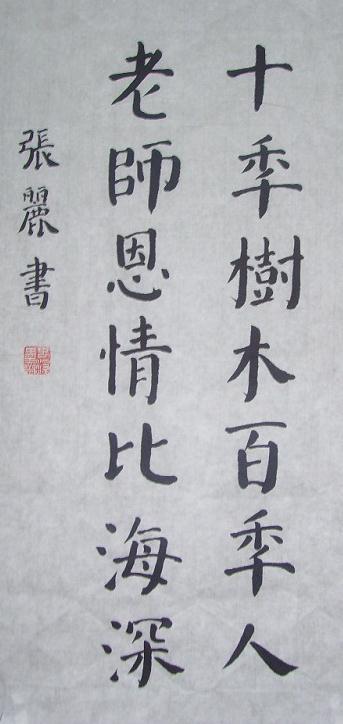 十秊樹木百秊人
老師恩情比海深
張麗書